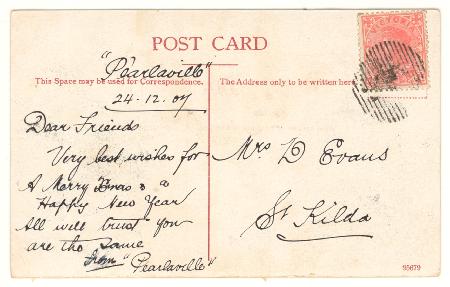 VICTORIA
POST CARD
"Pearlaville"
This Space may be used for Correspondence.
The Address only to be written here
24-12.07
Dear Friends
Very best wishes for
A Merry Xmas & a
Happy New Year
All well trust you
are the same
from "Pearlaville"
Mrs D Evans
St Kilda
95679